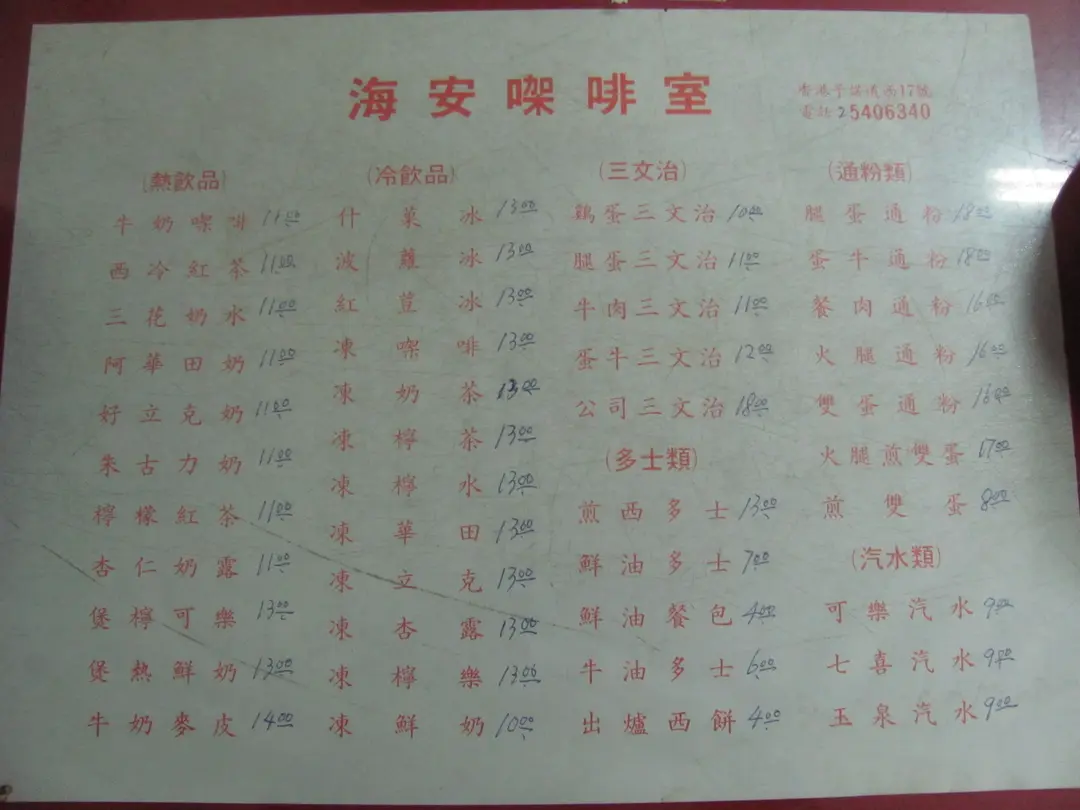 海安㗎啡室
香港干諾道西17號
電話 25406340
(熱飲品)
牛奶㗎啡 11.00
西冷紅茶 11.00
三花奶水 11.00
阿華田奶 11.00
好立克奶 11.00
朱古力奶 11.00
檸檬紅茶 11.00
杏仁奶露 11.00
煲檸可樂 13.00
煲熱鮮奶 13.00
牛奶麥皮 14.00
(冷飲品)
什菓冰 13.00
波蘿冰 13.00
紅荳冰 13.00
凍㗎啡 13.00
凍奶茶 13.00
凍檸茶 13.00
凍檸水 13.00
凍華田 13.00
凍立克 13.00
凍杏露 13.00
凍檸樂 13.00
凍鮮奶 10.00
(三文治)
鷄蛋三文治 10.00
腿蛋三文治 11.00
牛肉三文治 11.00
蛋牛三文治 12.00
公司三文治 18.00
(多士類)
煎西多士 13.00
鮮油多士 7.00
鮮油餐包 4.00
牛油多士 6.00
出爐西餅 4.00
(通粉類)
腿蛋通粉 18.00
蛋牛通粉 18.00
餐肉通粉 16.00
火腿通粉 16.00
雙蛋通粉 16.00
火腿煎雙蛋 17.00
煎雙蛋 8.00
(汽水類)
可樂汽水 9.00
七喜汽水 9.00
玉泉汽水 9.00